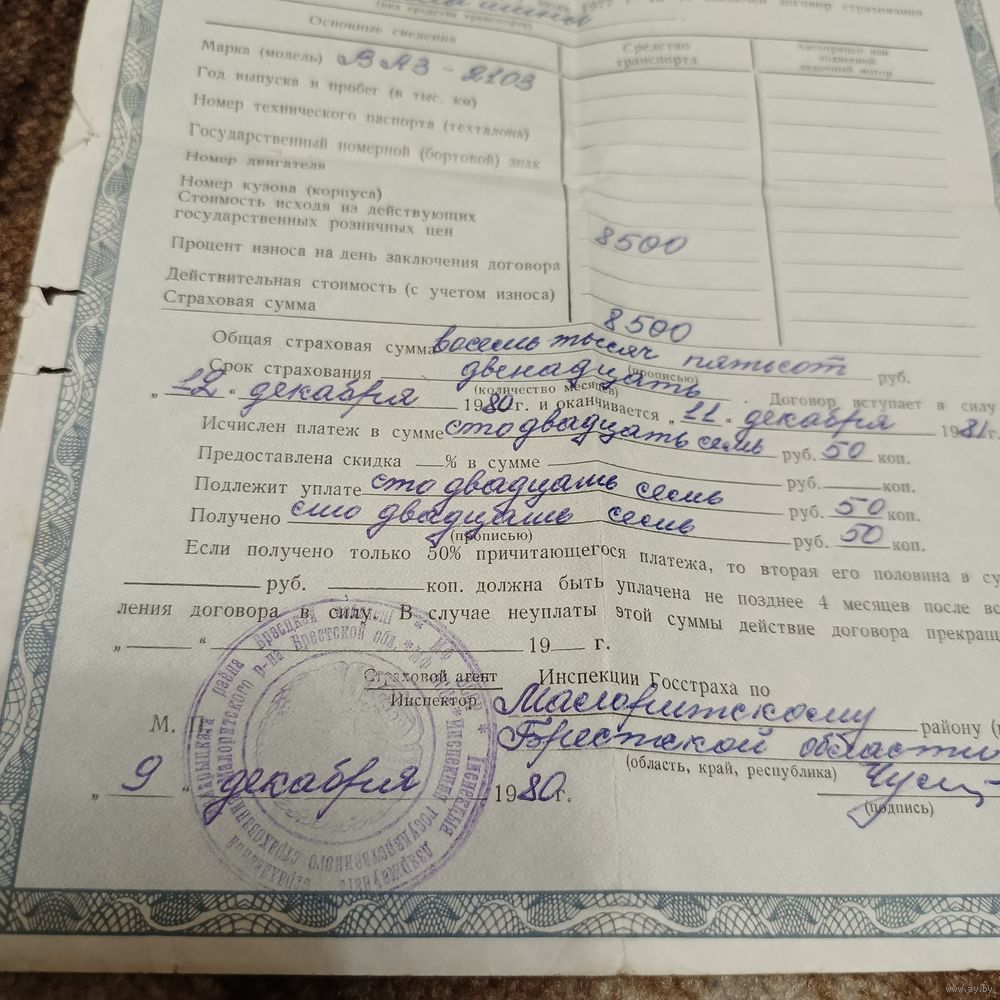 1977 г. договор страхования
(вид средства транспорта)
Основные сведения
Средство транспорта
Автоприцеп или подвесной лодочный мотор
Марка (модель) ВАЗ - 2103
Год выпуска и пробег (в тыс. км)
Номер технического паспорта (техталона)
Государственный номерной (бортовой) знак
Номер двигателя
Номер кузова (корпуса)
Стоимость исходя из действующих
государственных розничных цен 8500
Процент износа на день заключения договора
Действительная стоимость (с учетом износа)
Страховая сумма 8500
Общая страховая сумма восемь тысяч пятьсот руб.
(прописью)
Срок страхования двенадцать . Договор вступает в силу
(количество месяцев)
„ 12 “ декабря 1980 г. и оканчивается „ 11 “ декабря 1981 г.
Исчислен платеж в сумме сто двадцать семь руб. 50 коп.
Предоставлена скидка —% в сумме — руб. — коп.
Подлежит уплате сто двадцать семь руб. 50 коп.
Получено сто двадцать семь руб. 50 коп.
(прописью)
Если получено только 50% причитающегося платежа, то вторая его половина в су
руб. коп. должна быть уплачена не позднее 4 месяцев после вс
ления договора в силу. В случае неуплаты этой суммы действие договора прекращ
„ “ 19 г.
Страховой агент
Инспектор
Инспекции Госстраха по
Малоритскому району
М. П.
Брестской области
(область, край, республика)
„ 9 “ декабря 1980 г.
(подпись)
Малоритского р-на Брестской обл. * Инспекция государственного страхования
www.ay.by